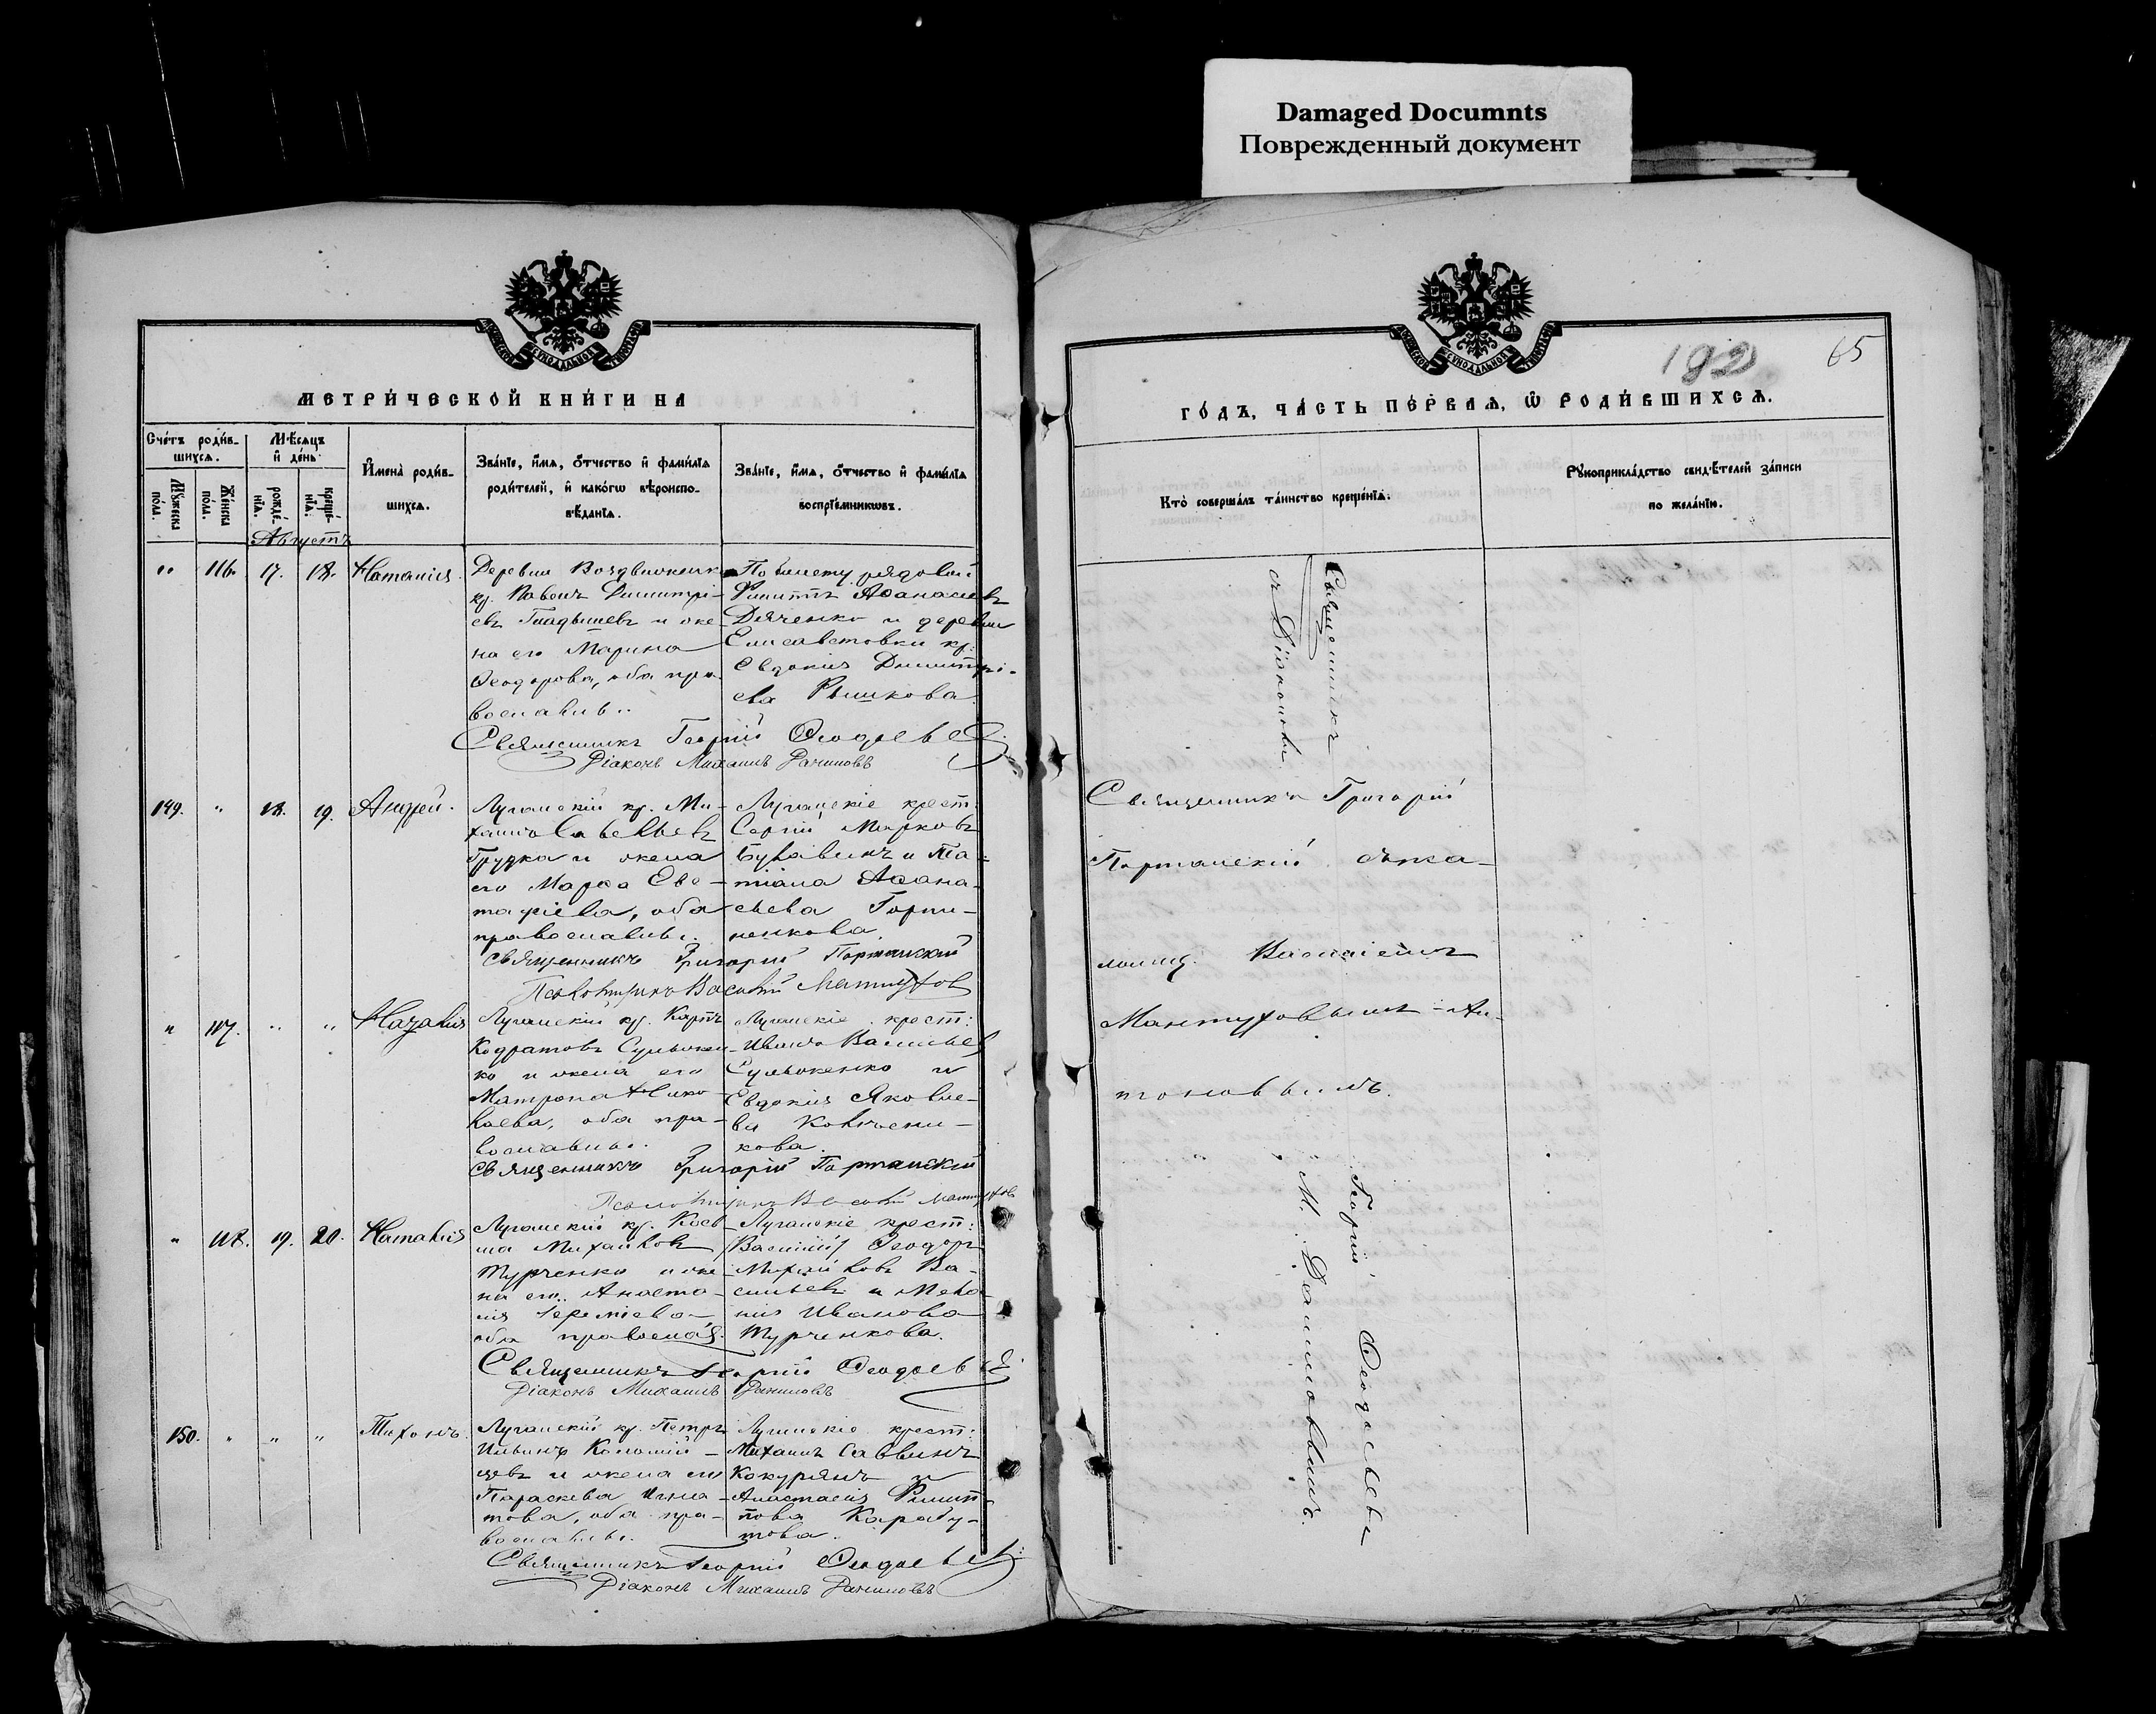 Damaged Documnts
Поврежденный документ
МЕТРИ́ЧЕСКОЙ КНИ́ГИ НА
Счётъ роди́в-
шихсѧ.
Мѣ́сѧцъ
и҆ де́нь.
Мꙋ́жеска
по́ла.
Же́нска
по́ла.
рожде́-
нїѧ.
креще́-
нїѧ.
И҆мена̀ роди́в-
шихсѧ.
Зва́нїе, и҆́мѧ, ѻ҆́тчество и҆ фами́лїѧ
роди́телей, и҆ како́гѡ вѣроиспо-
вѣ́данїѧ.
Зва́нїе, и҆́мѧ, ѻ҆́тчество и҆ фами́лїѧ
воспрїе́мникѡвъ.
Августъ
" 116. 17. 18. Наталія.
Деревни Воздвиженки
кр. Павелъ Димитрі-
евъ Гладышевъ и же-
на его Марина
Ѳеодорова, оба пра-
вославны.
По билету рядовой
Филиппъ Аѳанасіевъ
Дяченко и деревни
Елисаветовки кр.
Евдокія Димитрі-
ева Рышкова.
Священникъ Георгій Ѳеодосьевъ
Діаконъ Михаилъ Даниловъ
149. " 18. 19. Андрей.
Луганскій кр. Ми-
хаилъ Савельевъ
Грудка и жена
его Марѳа Евс-
тафіева, оба
православны.
Луганскіе крест:
Сергій Марковъ
Булавинъ и Та-
тіана Аѳана-
сьева Горпи-
ненкова.
Священникъ Григорій Портанскій
Псаломщикъ Василій Мантуховъ
" 117. " "
Луганскій кр. Карпъ
Кодратовъ Сулженко
и жена его
Матрона Нико-
лаева, оба пра-
вославны.
Луганскіе крест:
Иванъ Васильевъ
и
Евдокія Яковле-
ва
кова.
Священникъ Григорій Портанскій
Псаломщикъ Василій Мантуховъ
" 118. 19. 20. Наталія
Луганскій кр. Косъ-
ма Михайловъ
Турченко и же-
на его Анаста-
сія Іереміева
оба правосла.
Луганскіе крест:
(Василій) Ѳеодоръ
Михайловъ Ва-
сильевъ и Мела-
нія Иванова
Турченкова.
Священникъ Георгій Ѳеодосьевъ
Діаконъ Михаилъ Даниловъ
150. " " " Тихонъ.
Луганскій кр. Петръ
Ильинъ Коломій-
цевъ и жена его
Параскева Игна-
това, оба пра-
вославны.
Луганскіе крест:
Михаилъ Саввинъ
Кокурянъ и
Анастасія Филип-
пова Карабу-
това.
Священникъ Георгій Ѳеодосьевъ
Діаконъ Михаилъ Даниловъ
182
65
ГО́ДЪ, ЧА́СТЬ ПЕ́РВАѦ, Ѡ҆ РОДИ́ВШИХСѦ.
Кто̀ соверша́лъ та́инство креще́нїѧ.
Рꙋкоприкла́дство свидѣ́телей за́писи
по жела́нїю.
Священникъ Георгій Ѳеодосьевъ
съ Діакономъ М. Даниловымъ.
Священникъ Григорій
Портанскій съ пса-
ломщ. Василіемъ
Мантуховымъ-Ан-
тоновымъ.